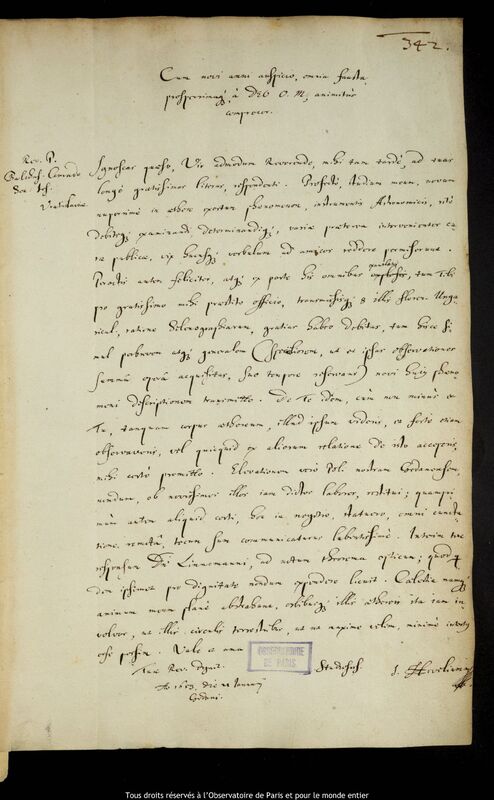 342.
Cum novi anni auspicio, omnia fausta
prosperrimaq; à Deo O. M. animitùs
comprecor.
Rev. P.
Balthas. Conrado
Soc. Jes.
Vratislaviae
Ignoscas quaeso, Vir admodum Reverende, mihi tam tardè, ad tuas
longè gratissimas literas, respondenti. Profectò, studium meum, novum
nuperrimè in aethere exortum phaenomenon, instrumentis Astronomicis, ritè
debitèq; examinandi, determinandiq;, variae praeterea intervenientes cu-
rae publicae, vix hucusq; verbulum ad amicos reddere permiserunt.
Peractis autem feliciter, atq; ex parte his omnibus, tum Tibi
pro gratissimo mihi praestito officio, transmissisq; 8 illis floren. Unga-
rical. ratione Selenographiarum, gratias habeo debitas, tum hisce si-
mul rudiorem atq; generalem (specialiorem, ut et ipsas observationes
summâ operâ acquisitas, suo tempore reservans) novi hujus phaeno-
meni descriptionem transmitto. De Te idem, cùm non minùs et
Tu, tanquam corpus aethereum, illud ipsum videris, et fortè etiam
observaveris, vel quicquid ex aliorum relatione de isto acceperis,
mihi certò promitto. Elevationem verò Poli nostram Gedanensem,
nondum, ob novissimos illos iam dictos labores, restitui; quampri-
mum autem aliquid certi, hoc in negotio, statuero, omni cuncta-
tione remotâ, tecum sum communicaturus lubentissimè. Interim tuae
responsum Dn. Linnemanni, ad notum theorema opticum; quod qui-
dem ipsimet pro dignitate nondum expendere licuit. Caelestia namq;
animum meum planè abstrahunt, orbibusq; illis aethereis ita iam in-
volvor, ut illis circulis terrestribus, ut ut maximè velim, minimè intentus
esse possim. Vale et ama
Tuae Rev. Dignit.
Studiosiss.
J. Hevelium
Ao 1653, die 11 Januarij
Gedani.
OBSERVATOIRE
DE PARIS
Tous droits réservés à l'Observatoire de Paris et pour le monde entier